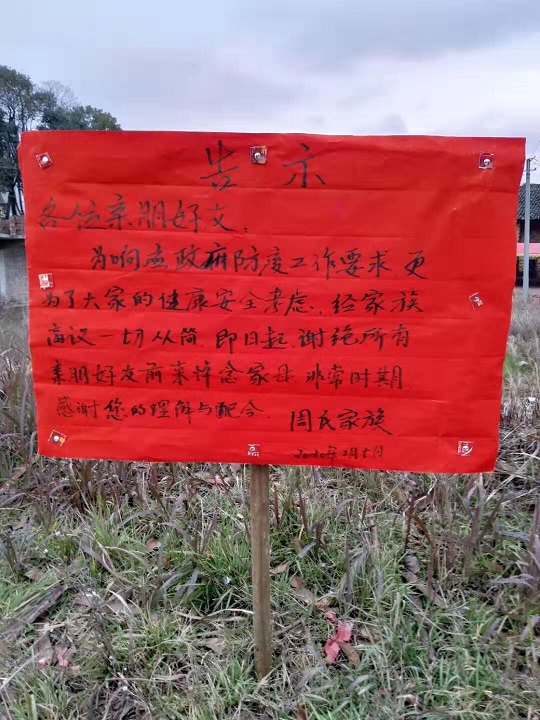 告示
各位亲朋好友、
为响应政府防疫工作要求更
为了大家的健康安全考虑、经家族
商议一切从简、即日起、谢绝所有
亲朋好友前来悼念家母、非常时期
感谢您的理解与配合、周氏家族
2020年2月5日